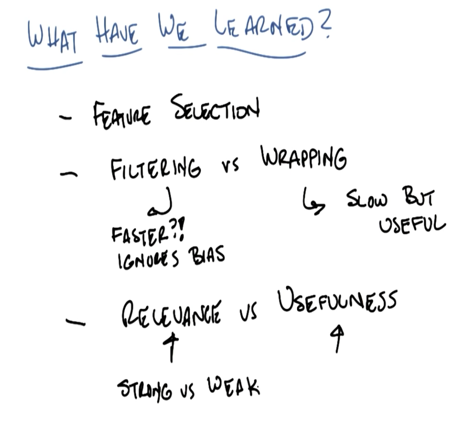 WHAT HAVE WE LEARNED?
- FEATURE SELECTION
- FILTERING vs WRAPPING
FASTER?!
IGNORES BIAS
SLOW BUT
USEFUL
- RELEVANCE vs USEFULNESS
STRONG vs WEAK